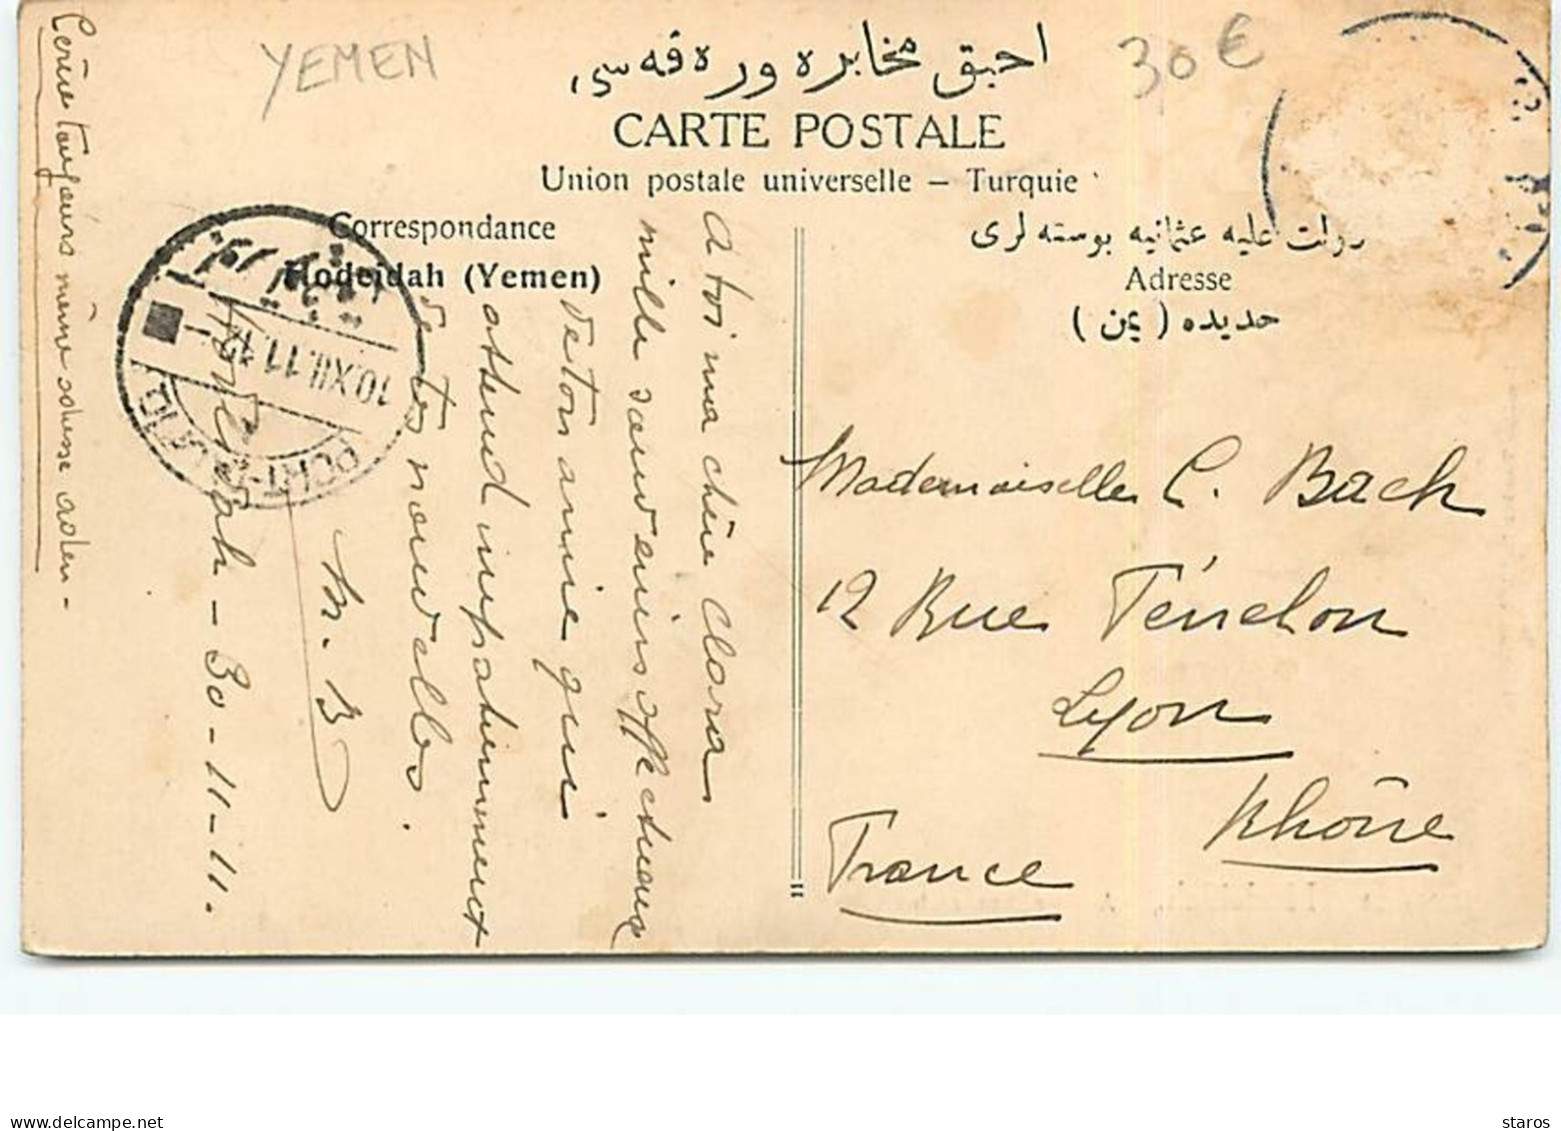 YEMEN
30 €
احبق مخابره ورەقەسی
CARTE POSTALE
Union postale universelle – Turquie
Correspondance
Hodeidah (Yemen)
دولت عليه عثمانيه بوسته لری
Adresse
حديده ( يمن )
Mademoiselle C. Bach
12 Rue Fénelon
Lyon
Rhône
France
A toi ma chère Clara
mille souvenirs affectueux
de ton amie qui
attend impatiemment
de tes nouvelles.
M. B
30-11-11.
toujours même adresse aden-
PORT-SAID
10.XII.11.
delcampe.net
staros